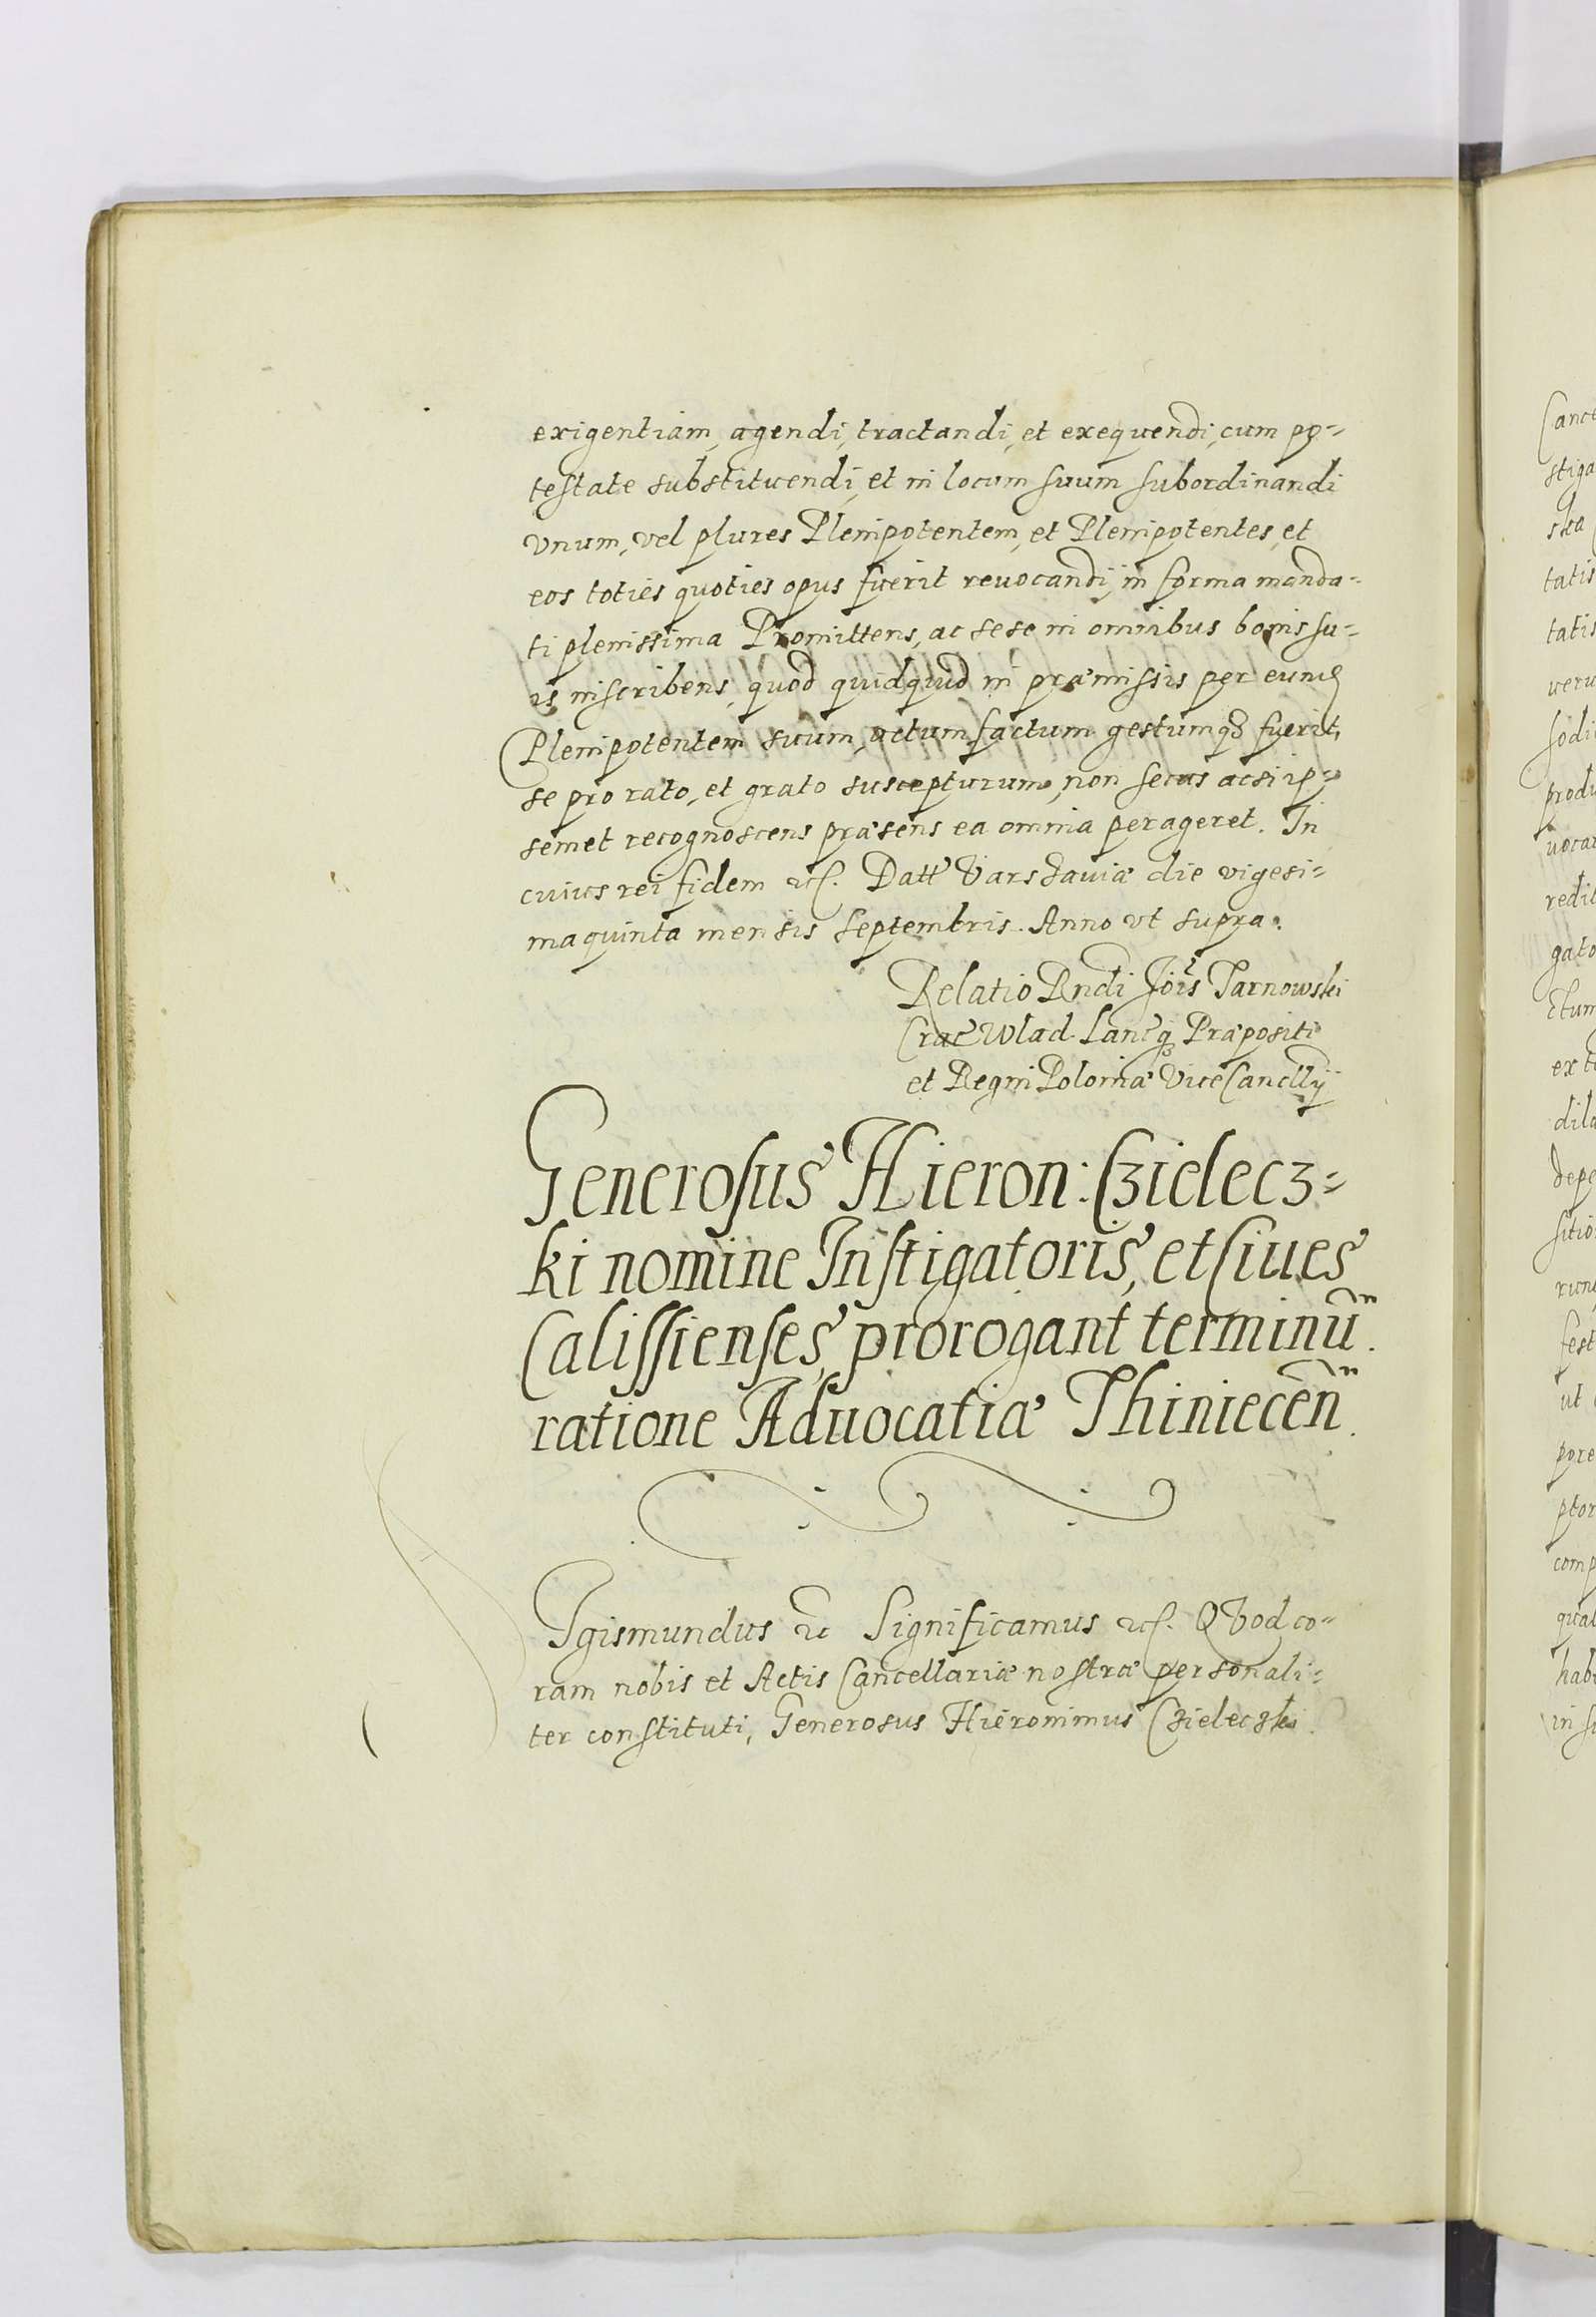 exigentiam, agendi, tractandi, et exequendi, cum po=
testate substituendi, et in locum suum subordinandi
vnum, vel plures Plenipotentem, et Plenipotentes, et
eos toties quoties opus fuerit reuocandi, in forma manda=
ti plenissima Promittens, ac sese in omnibus bonis su=
is inscribens, quod quidquid in præmissis per eund
Plenipotentem suum, actum factum gestumq3 fuerit,
se pro rato, et grato suscepturum, non secus acsi ip=
semet recognoscens præsens ea omnia perageret. In
cuius rei fidem etc. Datt Varsauiæ die vigesi=
ma quinta mensis Septembris. Anno vt supra.
Relatio Rndi Jois Tarnowski
Crac Wlad. Lancq3 Præpositi
et Regni Poloniæ ViceCancllij
Generosus Hieron: Czielecz=
ki nomine Instigatoris, et Ciues
Calissienses, prorogant terminū.
ratione Aduocatiæ Thiniecēn.
Sgismundus etc Significamus etc. QVod co=
ram nobis et Actis Cancellariæ nostræ personali=
ter constituti, Generosus Hieronimus Czieleczki.